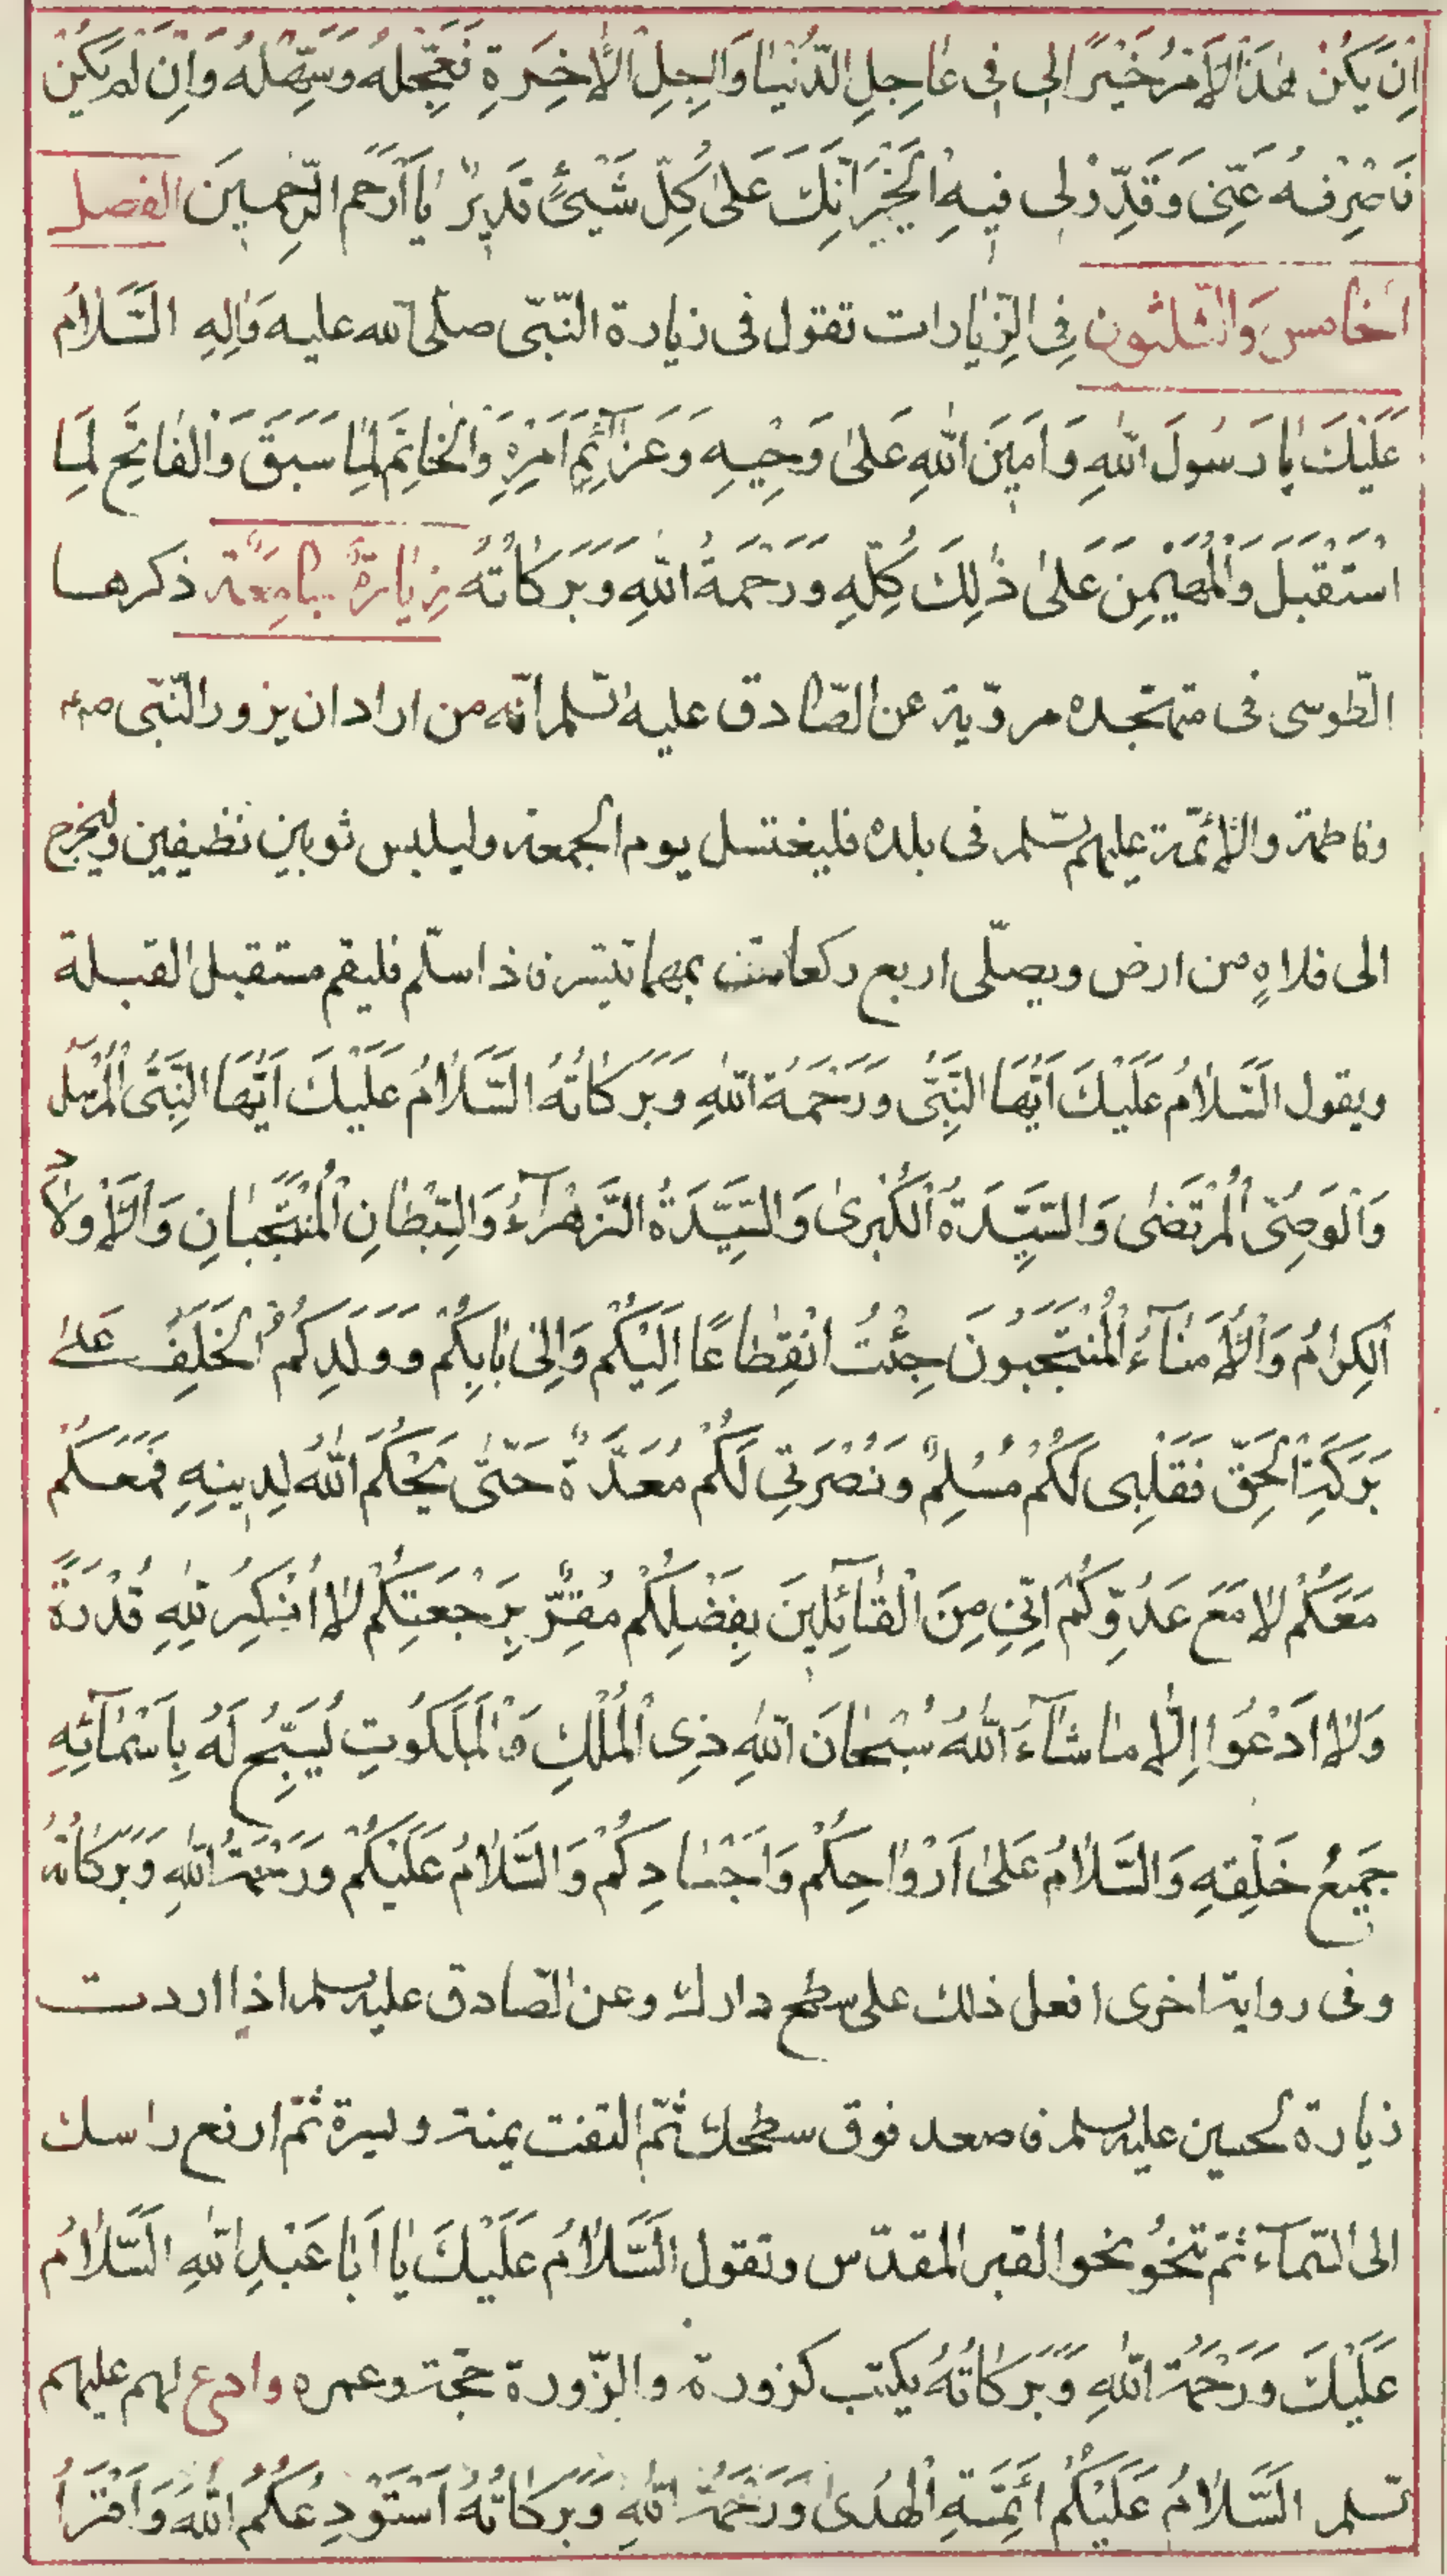 اِنْ يَكُنْ هٰذَا الْاَمْرُ خَيْرًا لى فى عٰاجِلِ الدُّنْيٰا وَاٰجِلِ الْاٰخِرَةِ فَعَجِّلْهُ وَسَهِّلْهُ وَاِنْ لَمْ يَكُنْ
فَاصْرِفْهُ عَنّى وَقَدِّرْ لى فيهِ الْخَيْرَ اِنَّكَ عَلىٰ كُلِّ شَيْئٍ قَديرٌ يٰا اَرْحَمَ الرّٰحِمينَ الفصل
الخامس وَالثّلثون فِى الزِّيٰارات تقول فى زيارة النّبّى صلّى الله عليه وَاٰلِهِ السَّلاٰمُ
عَلَيْكَ يٰا رَسُولَ اللهِ وَاَمينَ اللهِ عَلىٰ وَحْيِهِ وَعَزٰآئِمِ اَمْرِهِ وَالْخٰاتِمَ لِمٰا سَبَقَ وَالْفٰاتِحَ لِمَا
اسْتَقْبَلَ وَالْمُهَيْمِنَ عَلىٰ ذٰلِكَ كُلِّهِ وَرَحْمَةُ اللهِ وَبَرَكٰاتُهُ زِيٰارَةٌ جٰامِعَة ذكرها
الطّوسى فى متهجّده مرويّة عن الصّادق عليه السّلم انّه من اراد ان يزور النّبّى ص
وفاطمة والائمّة عليهم السّلم فى بلده فليغتسل يوم الجمعة وليلبس ثوبين نظيفين وليخرج
الى فلاةٍ من ارض ويصلّى اربع ركعات بمهما تيسّر فاذا سلّم فليقم مستقبل القبلة
ويقول اَلسَّلاٰمُ عَلَيْكَ اَيُّهَا النَّبِىُّ وَرَحْمَةُ اللهِ وَبَرَكٰاتُهُ اَلسَّلاٰمُ عَلَيْكَ اَيُّهَا النَّبِىُّ الْمُرْسَلُ
وَالْوَصِىُّ الْمُرْتَضىٰ وَالسَّيِّدَةُ الْكُبْرىٰ وَالسَّيِّدَةُ الزَّهْرٰآءُ وَالسِّبْطٰانِ الْمُنْتَجَبٰانِ وَالْاَوْلاٰدُ
الْكِرٰامُ وَالْاُمَنٰآءُ الْمُنْتَجَبُونَ جِئْتُ انْقِطٰاعًا اِلَيْكُمْ وَاِلىٰ اٰبٰائِكُمْ وَوَلَدِكُمُ الْخَلَفِ عَلىٰ
بَرَكَةِ الْحَقِّ فَقَلْبى لَكُمْ مُسْلِمٌ وَنُصْرَتى لَكُمْ مُعَدَّةٌ حَتّىٰ يَحْكُمَ اللهُ لِدينِهِ فَمَعَكُمْ
مَعَكُمْ لاٰ مَعَ عَدُوِّكُمْ اِنّى مِنَ الْقٰآئِلينَ بِفَضْلِكُمْ مُقِرٌّ بِرَجْعَتِكُمْ لاٰ اُنْكِرُ لِلّٰهِ قُدْرَةً
وَلاٰ اَدْعُوا اِلاّٰ مٰا شٰآءَ اللهُ سُبْحٰانَ اللهِ ذِى الْمُلْكِ وَالْمَلَكُوتِ يُسَبِّحُ لَهُ بِاَسْمٰآئِهِ
جَميعُ خَلْقِهِ وَالسَّلاٰمُ عَلىٰ اَرْوٰاحِكُمْ وَاَجْسٰادِكُمْ وَالسَّلاٰمُ عَلَيْكُمْ وَرَحْمَةُ اللهِ وَبَرَكٰاتُهُ
وفى رواية اخرى افعل ذلك على سطح دارك وعن الصّادق عليه السلم اذا اردت
زيارة الحسين عليه السلم فاصعد فوق سطحك ثمّ التفت يمنة ويسرة ثمّ ارفع راسك
الى السّمآء ثمّ تنحُو نحو القبر المقدّس وتقول اَلسَّلاٰمُ عَلَيْكَ يٰا اَبٰا عَبْدِ اللهِ اَلسَّلاٰمُ
عَلَيْكَ وَرَحْمَةُ اللهِ وَبَرَكٰاتُهُ يكتب كزورة والزّورة حجّة وعمره وادع لهم عليهم
السّلم اَلسَّلاٰمُ عَلَيْكُمْ اَئِمَّةِ الْهُدىٰ وَرَحْمَةُ اللهِ وَبَرَكٰاتُهُ اَسْتَوْدِعُكُمُ اللهَ وَاَقْرَأُ